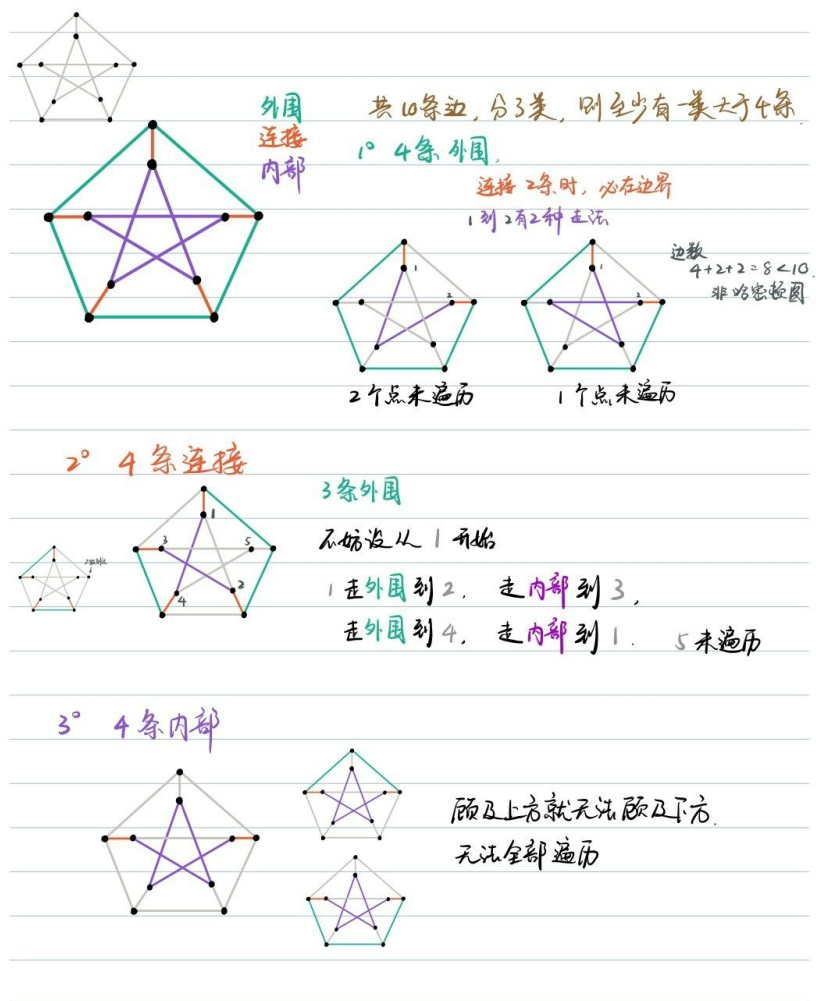 外围
连接
内部
共10条边,分3类,则至少有一类大于4条.
1° 4条外围,
连接2条时,必在边界
1到2有2种走法
1
2
1
2
边数
4+2+2=8<10.
非哈密顿图
2个点未遍历
1个点未遍历
2° 4条连接
3条外围
1
3
5
2
4
不妨设从1开始
1走外围到2, 走内部到3,
走外围到4, 走内部到1. 5未遍历
3° 4条内部
顾及上方就无法顾及下方.
无法全部遍历